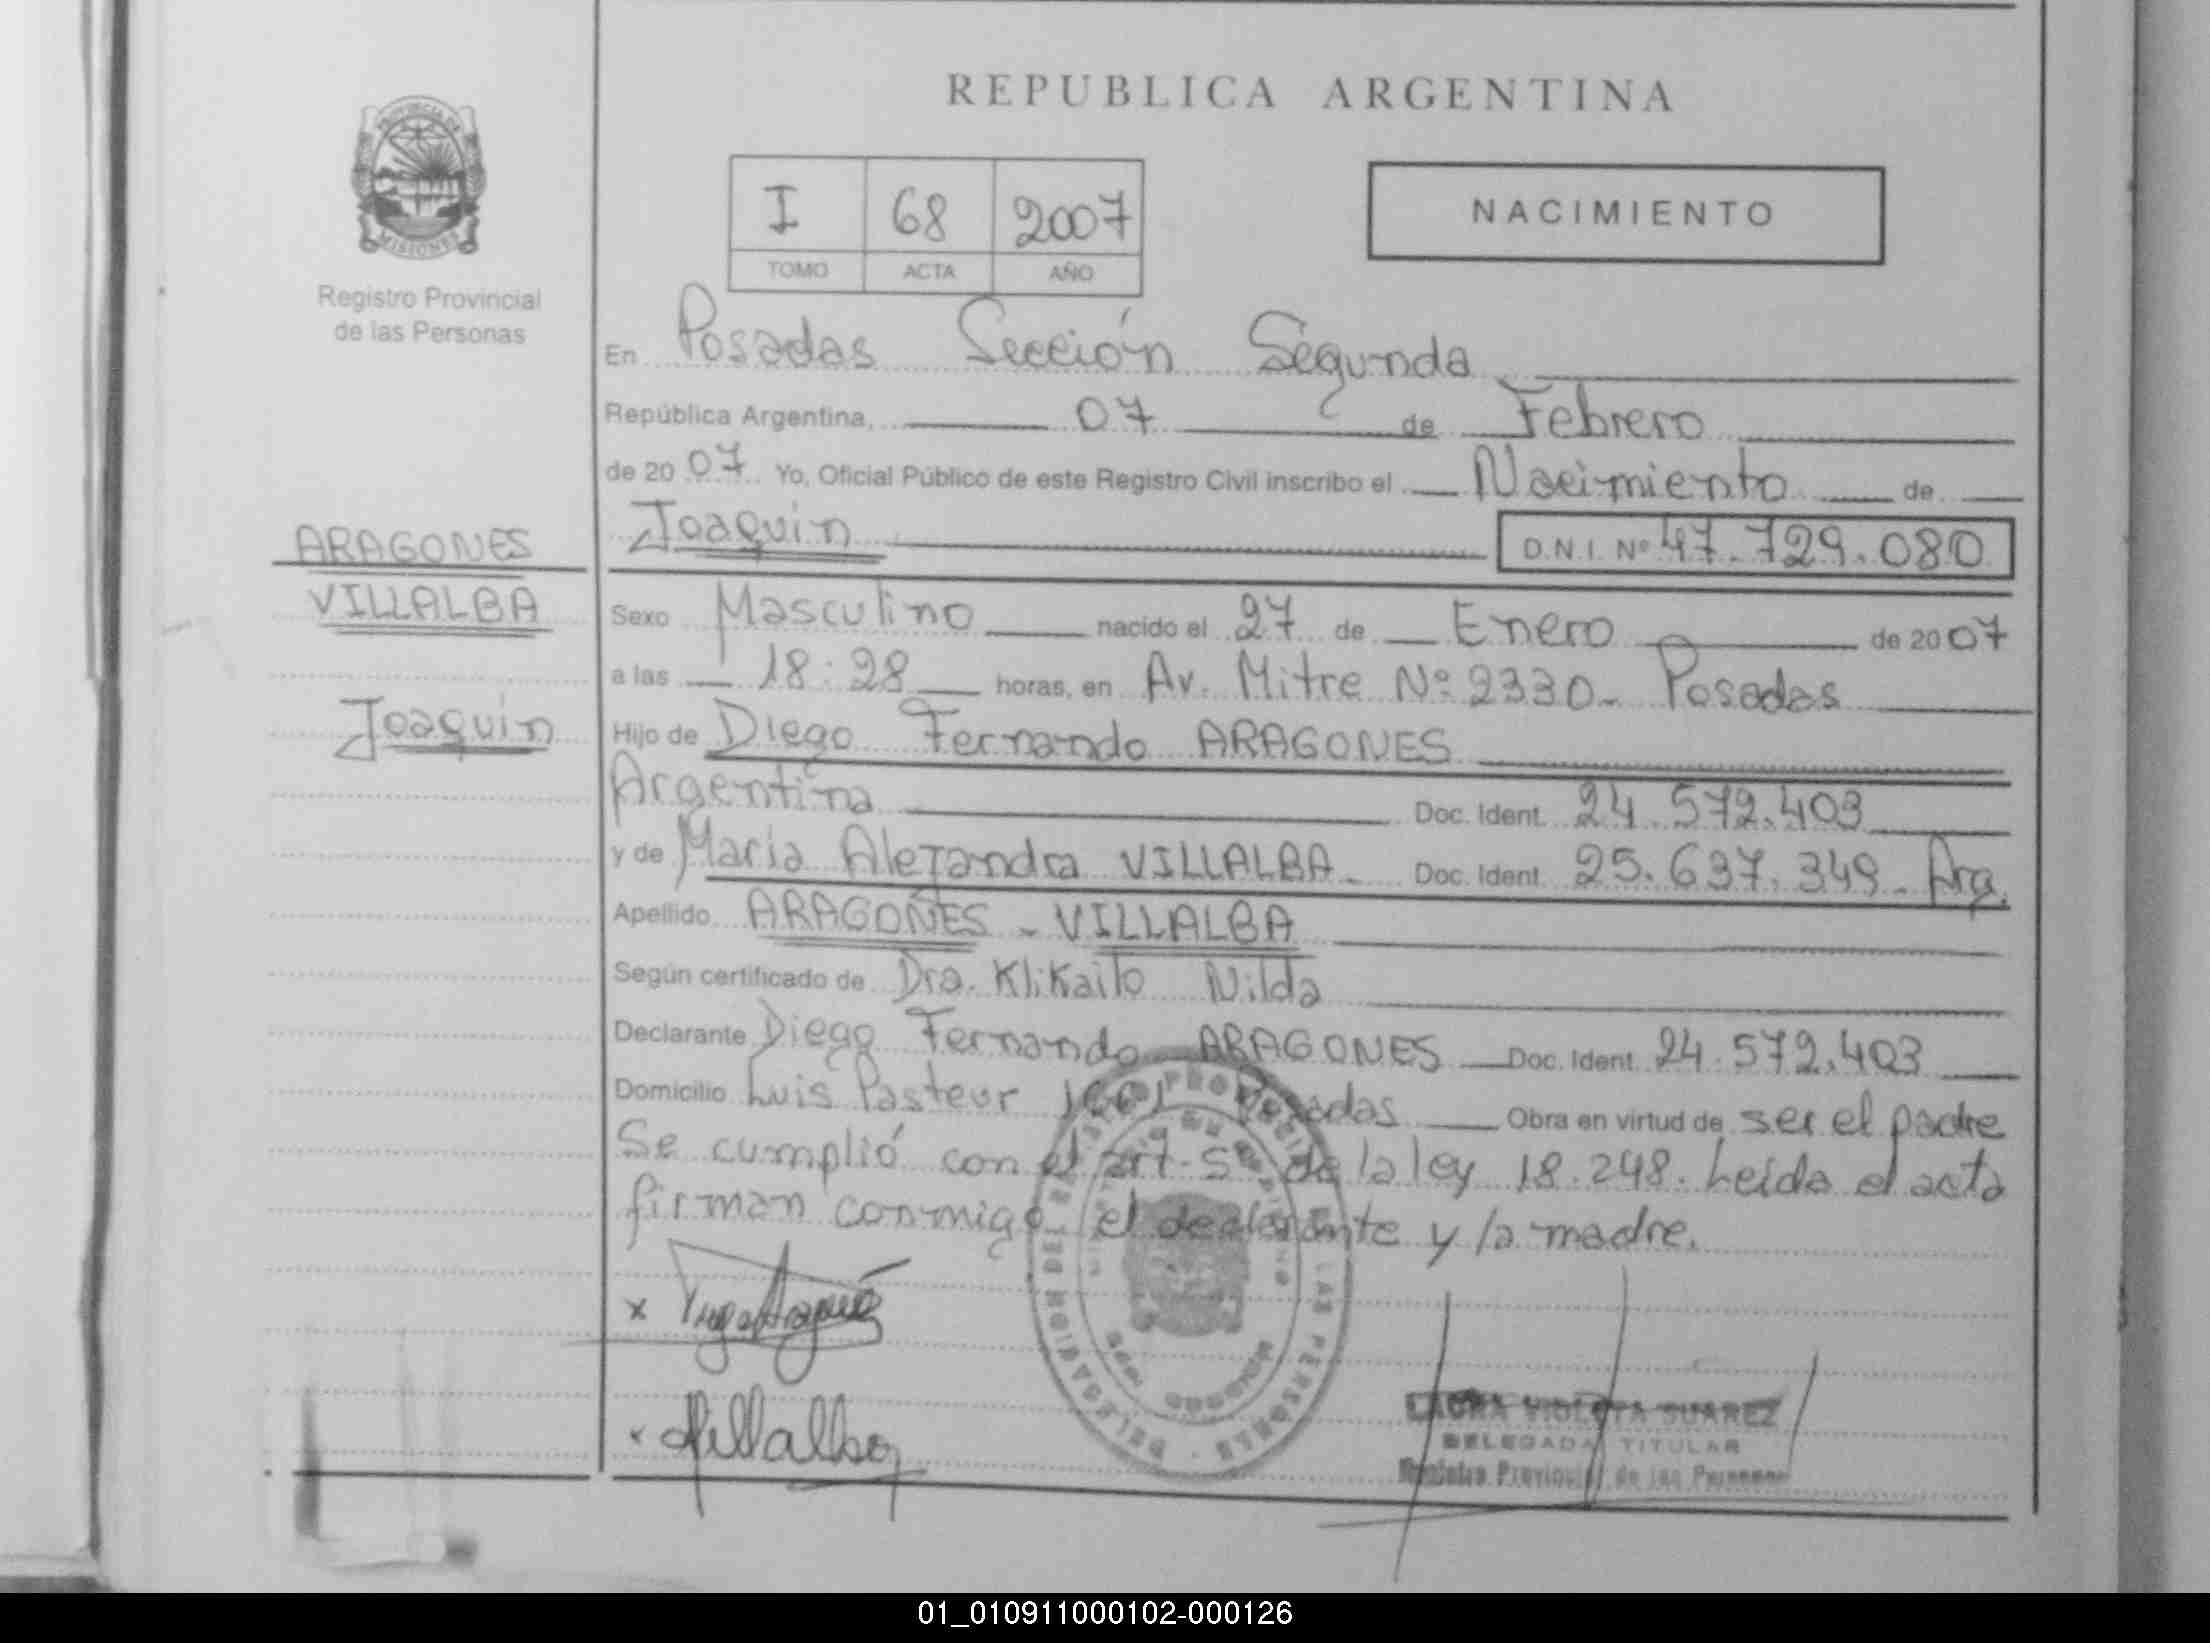 REPUBLICA ARGENTINA
PROVINCIA DE
MISIONES
Registro Provincial
de las Personas
I 68 2007
TOMO ACTA AÑO
NACIMIENTO
En Posadas Sección Segunda
República Argentina, 07 de Febrero
de 20 07 Yo, Oficial Público de este Registro Civil inscribo el Nacimiento de
Joaquin D.N.I. Nº 47.729.080
ARAGONES
VILLALBA
Joaquin
Sexo Masculino nacido el 27 de Enero de 20 07
a las 18:28 horas, en Av. Mitre Nº 2330- Posadas
Hijo de Diego Fernando ARAGONES
Argentina Doc. Ident. 24.572.403
y de Maria Alejandra VILLALBA- Doc. Ident. 25.637.349- Arg.
Apellido ARAGONES - VILLALBA
Según certificado de Dra. Klikailo Nilda
Declarante Diego Fernando ARAGONES Doc. Ident. 24.572.403
Domicilio Luis Pasteur Posadas Obra en virtud de ser el padre
Se cumplió con el art. 5º de la ley 18.248. Leída el acta
firman conmigo el declarante y la madre.
x
x Villalba
LAURA VIOLETA SUAREZ
DELEGADA TITULAR
Registro Provincial de las Personas
01_010911000102-000126